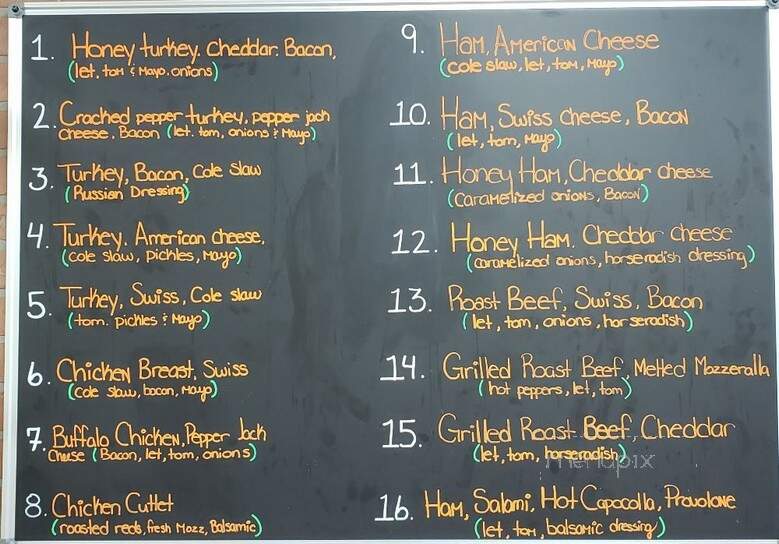 1. Honey turkey. cheddar. Bacon,
(let, tom & Mayo. onions)
2. Cracked pepper turkey, pepper jack
cheese. Bacon (let. tom, onions & Mayo)
3. Turkey, Bacon, Cole slaw
(Russian Dressing)
4. Turkey. American cheese,
(cole slaw, pickles, Mayo)
5. Turkey, Swiss, Cole slaw
(tom. pickles & Mayo)
6. Chicken Breast, Swiss
(Cole slaw, bacon, Mayo)
7. Buffalo Chicken, Pepper Jack
Cheese (Bacon, let, tom, onions)
8. Chicken Cutlet
(roasted reds, fresh Mozz, Balsamic)
9. Ham, American Cheese
(cole slaw, let, tom, Mayo)
10. Ham, Swiss cheese, Bacon
(let, tom, Mayo)
11. Honey Ham, Cheddar cheese
(Caramelized onions, Bacon)
12. Honey Ham. Cheddar cheese
(caramelized onions, horseradish dressing)
13. Roast Beef, Swiss, Bacon
(let, tom, onions, horseradish)
14. Grilled Roast Beef, Melted Mozzeralla
(hot peppers, let, tom)
15. Grilled Roast Beef, Cheddar
(let, tom, horseradish)
menupix
16. Ham, Salami, Hot Capocolla, Provolone
(let, tom, balsamic dressing)